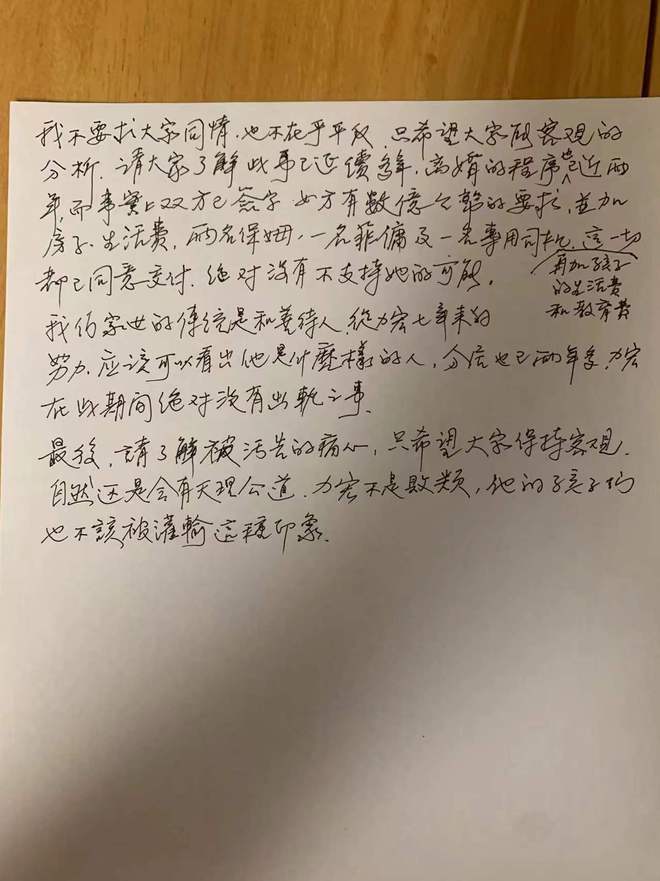 我不要求大家同情，也不在乎平反，只希望大家有客观的
分析，請大家了解此事已延續多年，离婚的程序也已近两
年，而事實上双方已签字 女方有数億台幣的要求，並加
房子、生活費，兩名保姆，一名菲傭及一名專用司机，這一切
再加孩子
的生活費
和教育費
都已同意交付，绝对沒有不支持她的可能。
我们家世的傳统是和善待人，從力宏七年来的
努力，应该可以看出他是什麼樣的人，分居也已兩年多，力宏
在此期间绝对沒有出軌之事。
最後，請了解被污告的痛心，只希望大家保持客观，
自然还是会有天理公道，力宏不是败类，他的孩子们
也不該被灌輸這種印象。